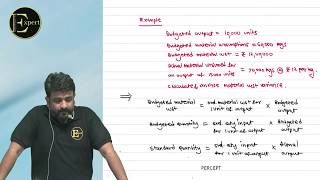 Expert
E
Expert
Example
Budgeted output = 10,000 units
Budgeted material = 60,000 kgs
Budgeted material cost = ₹
Actual material
an output of units kgs @ ₹ 12 per kg.
Calculate material cost variance.
⇒ Budgeted material cost = std material cost for 1 unit of output × Budgeted output
Budgeted quantity = std qty input for 1 unit output × Budgeted output
Standard quantity = std qty input for 1 unit of output × Actual output
PERCEPT